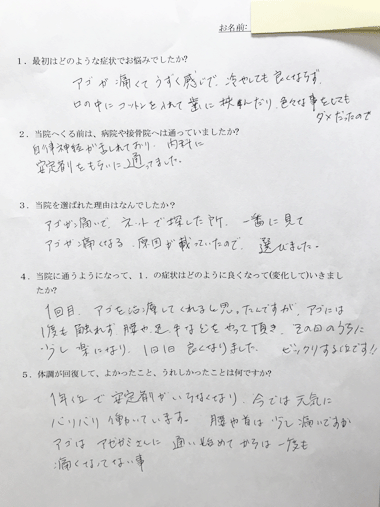 お名前:
1. 最初はどのような症状でお悩みでしたか?
アゴが痛くてうずく感じで、冷やしても良くならず、
口の中にコットンを入れて歯に挟んだり、色々な事をしても
ダメだったので
2. 当院へくる前は、病院や接骨院へは通っていましたか?
自律神経が乱れており、内科に
安定剤をもらいに通ってました。
3. 当院を選ばれた理由はなんでしたか?
アゴが痛いで、ネットで探した所、一番に見て
アゴが痛くなる原因が載っていたので、選びました。
4. 当院に通うようになって、1. の症状はどのように良くなって(変化して)いきまし
たか?
1回目、アゴを治療してくれると思ったんですが、アゴには
1度も触れず腰や足、手などをやって頂き、その日のうちに
少し楽になり、1日1日良くなりました。ビックリする位です!!
5. 体調が回復して、よかったこと、うれしかったことは何ですか?
1年位で安定剤がいらなくなり、今では元気に
バリバリ働いています。腰や首は少し痛いですが
アゴはアゼガミさんに通い始めてからは一度も
痛くなってない事